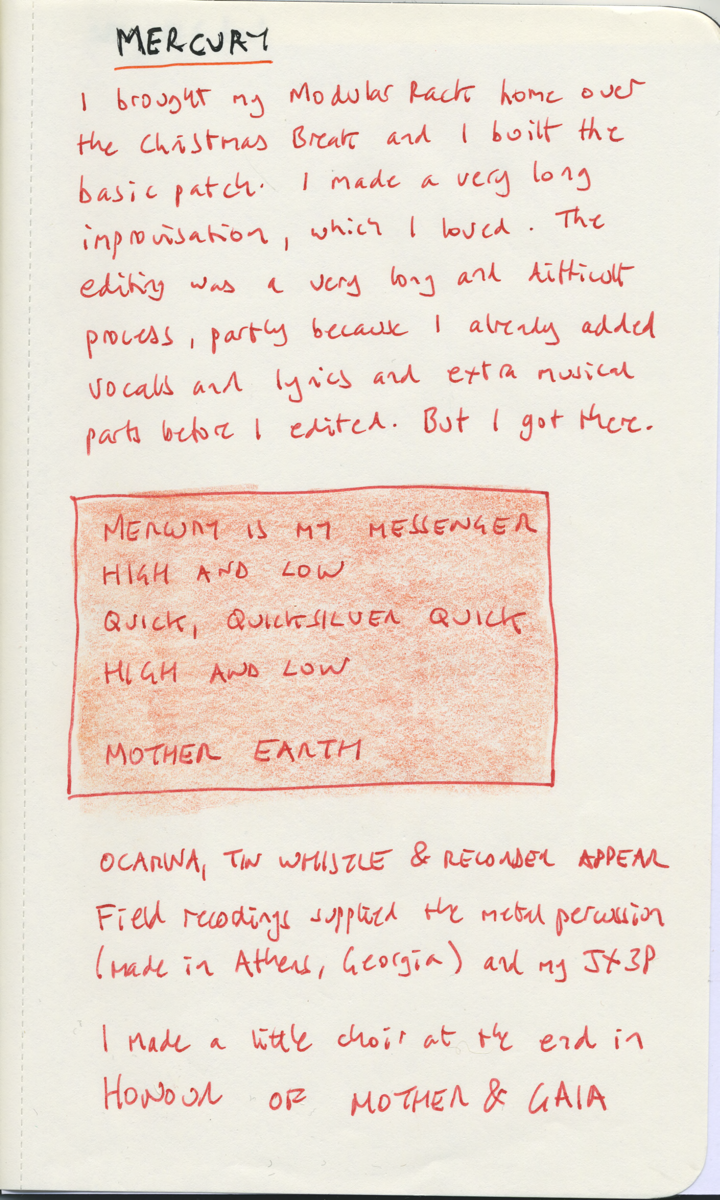 MERCURY
I brought my Modular Rack home over
the Christmas Break and I built the
basic patch. I made a very long
improvisation, which I loved. The
editing was a very long and difficult
process, partly because I already added
vocals and lyrics and extra musical
parts before I edited. But I got there.
MERCURY IS MY MESSENGER
HIGH AND LOW
QUICK, QUICKSILVER QUICK
HIGH AND LOW
MOTHER EARTH
OCARINA, TIN WHISTLE & RECORDER APPEAR
Field recodings supplied the metal percussion
(made in Athens, Georgia) and my JX3P
I made a little choir at the end in
HONOUR OF MOTHER & GAIA